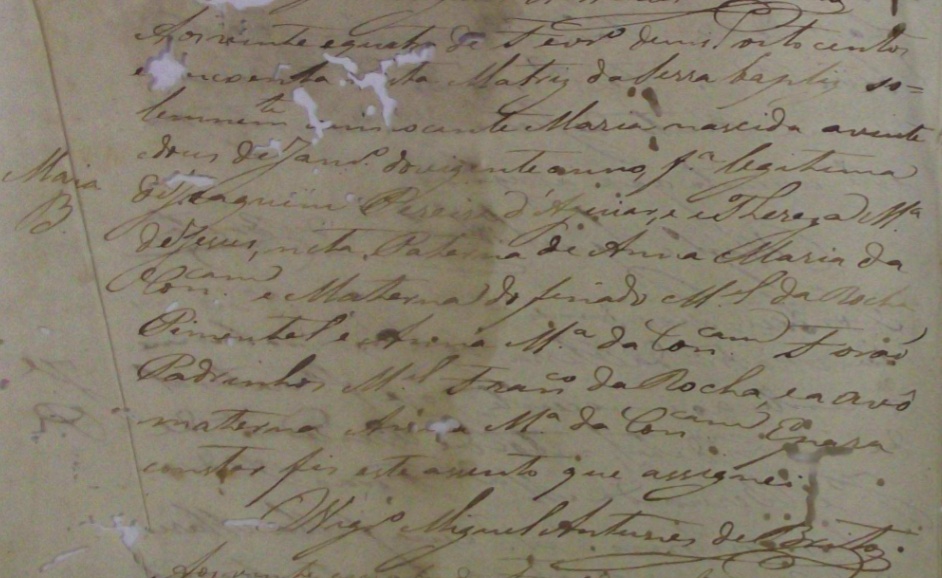 Aos vinte e quatro de Fevro de mil e oito centos
e sincoenta nesta Matriz da Serra baptizei so=
lemnemte a innocente Maria nascida a vinte
dous de Janro do vigente anno, fa legitima
de Joaquim Pereira d'Aguiar, e Thereza Ma
de Jesus, neta Paterna de Anna Maria da
Concam e Materna do finado Mel da Rocha
Pimentel e Anna Ma da Concam Forão
Padrinhos Mel Franco da Rocha, e a avó
materna Anna Ma da Concam E para
constar fis este asento que assignei.
O Vigro Miguel Antunes de Brito
Maria
B.
Aos vinte